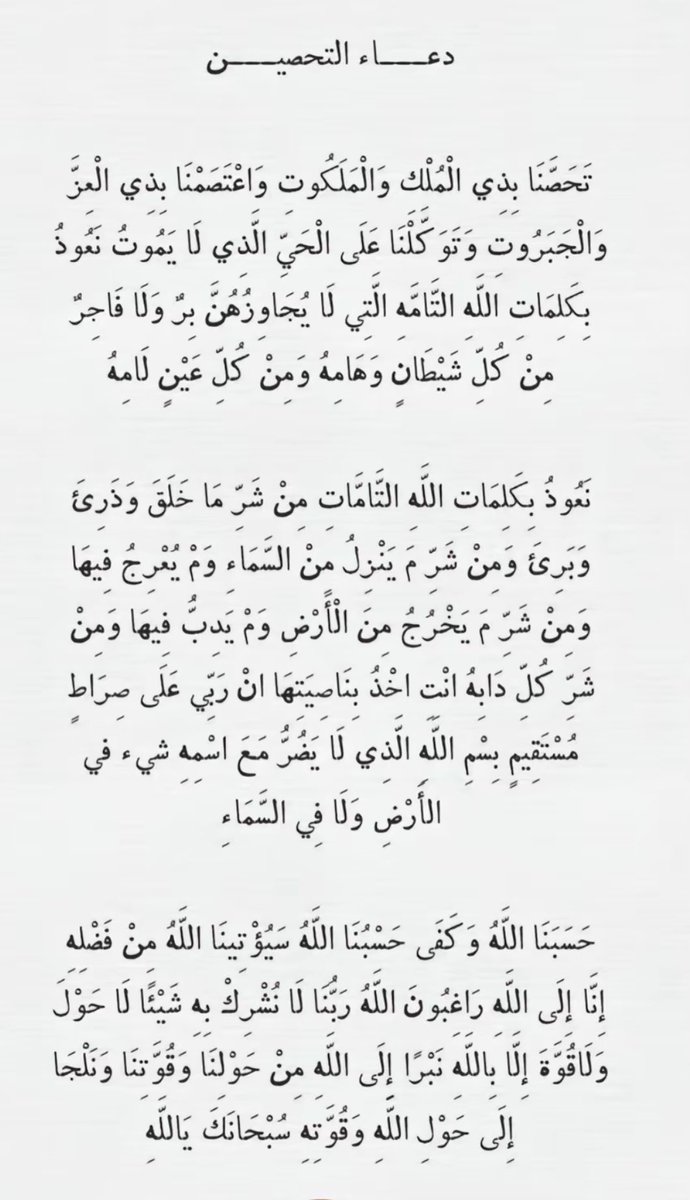 دعـــــاء التحصيـــــن
تَحَصَّنَا بِذِي الْمُلْكِ وَالْمَلَكُوتِ وَاعْتَصَمْنَا بِذِي الْعِزَّ
وَالْجَبَرُوتِ وَتَوَكَّلْنَا عَلَى الْحَيِّ الَّذِي لَا يَمُوتُ نَعُوذُ
بِكَلِمَاتِ اللَّهِ التَّامَّهِ الَّتِي لَا يُجَاوِزُهُنَّ بِرٌ وَلَا فَاجِرٌ
مِنْ كُلِّ شَيْطَانٍ وَهَامِهُ وَمِنْ كُلِّ عَيْنٍ لَامِهُ
نَعُوذُ بِكَلِمَاتِ اللَّهِ التَّامَّاتِ مِنْ شَرِّ مَا خَلَقَ وَذَرِئَ
وَبَرِئَ وَمِنْ شَرِّ مَ يَنْزِلُ مِنْ السَّمَاءِ وَمْ يُعْرِجُ فِيهَا
وَمِنْ شَرِّ مَ يَخْرُجُ مِنَ الْأَرْضِ وَمْ يَدِبُّ فِيهَا وَمِنْ
شَرِّ كُلِّ دَابِهُ انْتِ اخْذُ بِنَاصِيَتِهَا انْ رَبِّي عَلَى صِرَاطٍ
مُسْتَقِيمٍ بِسْمِ اللَّهِ الَّذِي لَا يَضُرُّ مَعَ اسْمِهِ شيء في
الأَرْضِ وَلَا فِي السَّمَاءِ
حَسَبَنَا اللَّهُ وَكَفَى حَسْبُنَا اللَّهُ سَيُؤْتِينَا اللَّهُ مِنْ فَضْلِهِ
إِنَّا إِلَى اللَّهِ رَاغِبُونَ اللَّهُ رَبُّنَا لَا نُشْرِكْ بِهِ شَيْئًا لَا حَوْلَ
وَلَاقُوَّةَ إِلَّا بِاللَّهِ نَبْرًا إِلَى اللَّهِ مِنْ حَوْلِنَا وَقُوَّتِنَا وَنَلْجَا
إِلَى حَوْلِ اللَّهِ وَقُوَّتِهِ سُبْحَانَكَ يَاللَّهِ